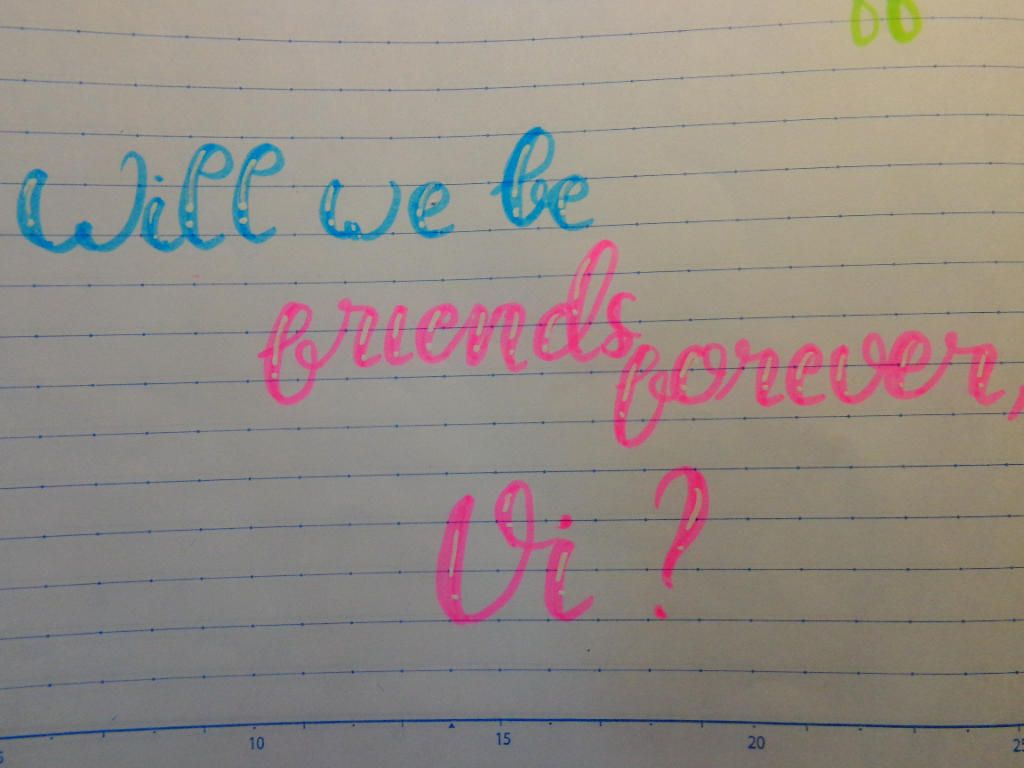 Will we be
friends forever,
Vi ?
10 15 20 25